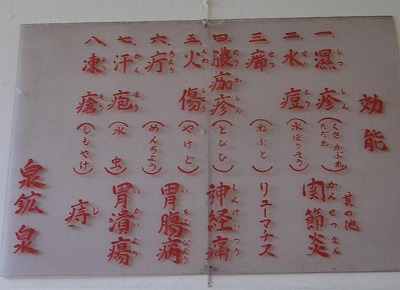 効能
一、濕疹(くさかぶれ ただれ)
其の他
関節炎
二、水痘(水ぼうそう)
三、癤(ねぶと)
リューマチス
四、膿痂疹(とびひ)
神経痛
五、火傷(やけど)
六、疔(めんちょう)
胃腸病
七、汗疱(水虫)
胃潰瘍
八、凍瘡(しもやけ)
痔
泉鉱泉